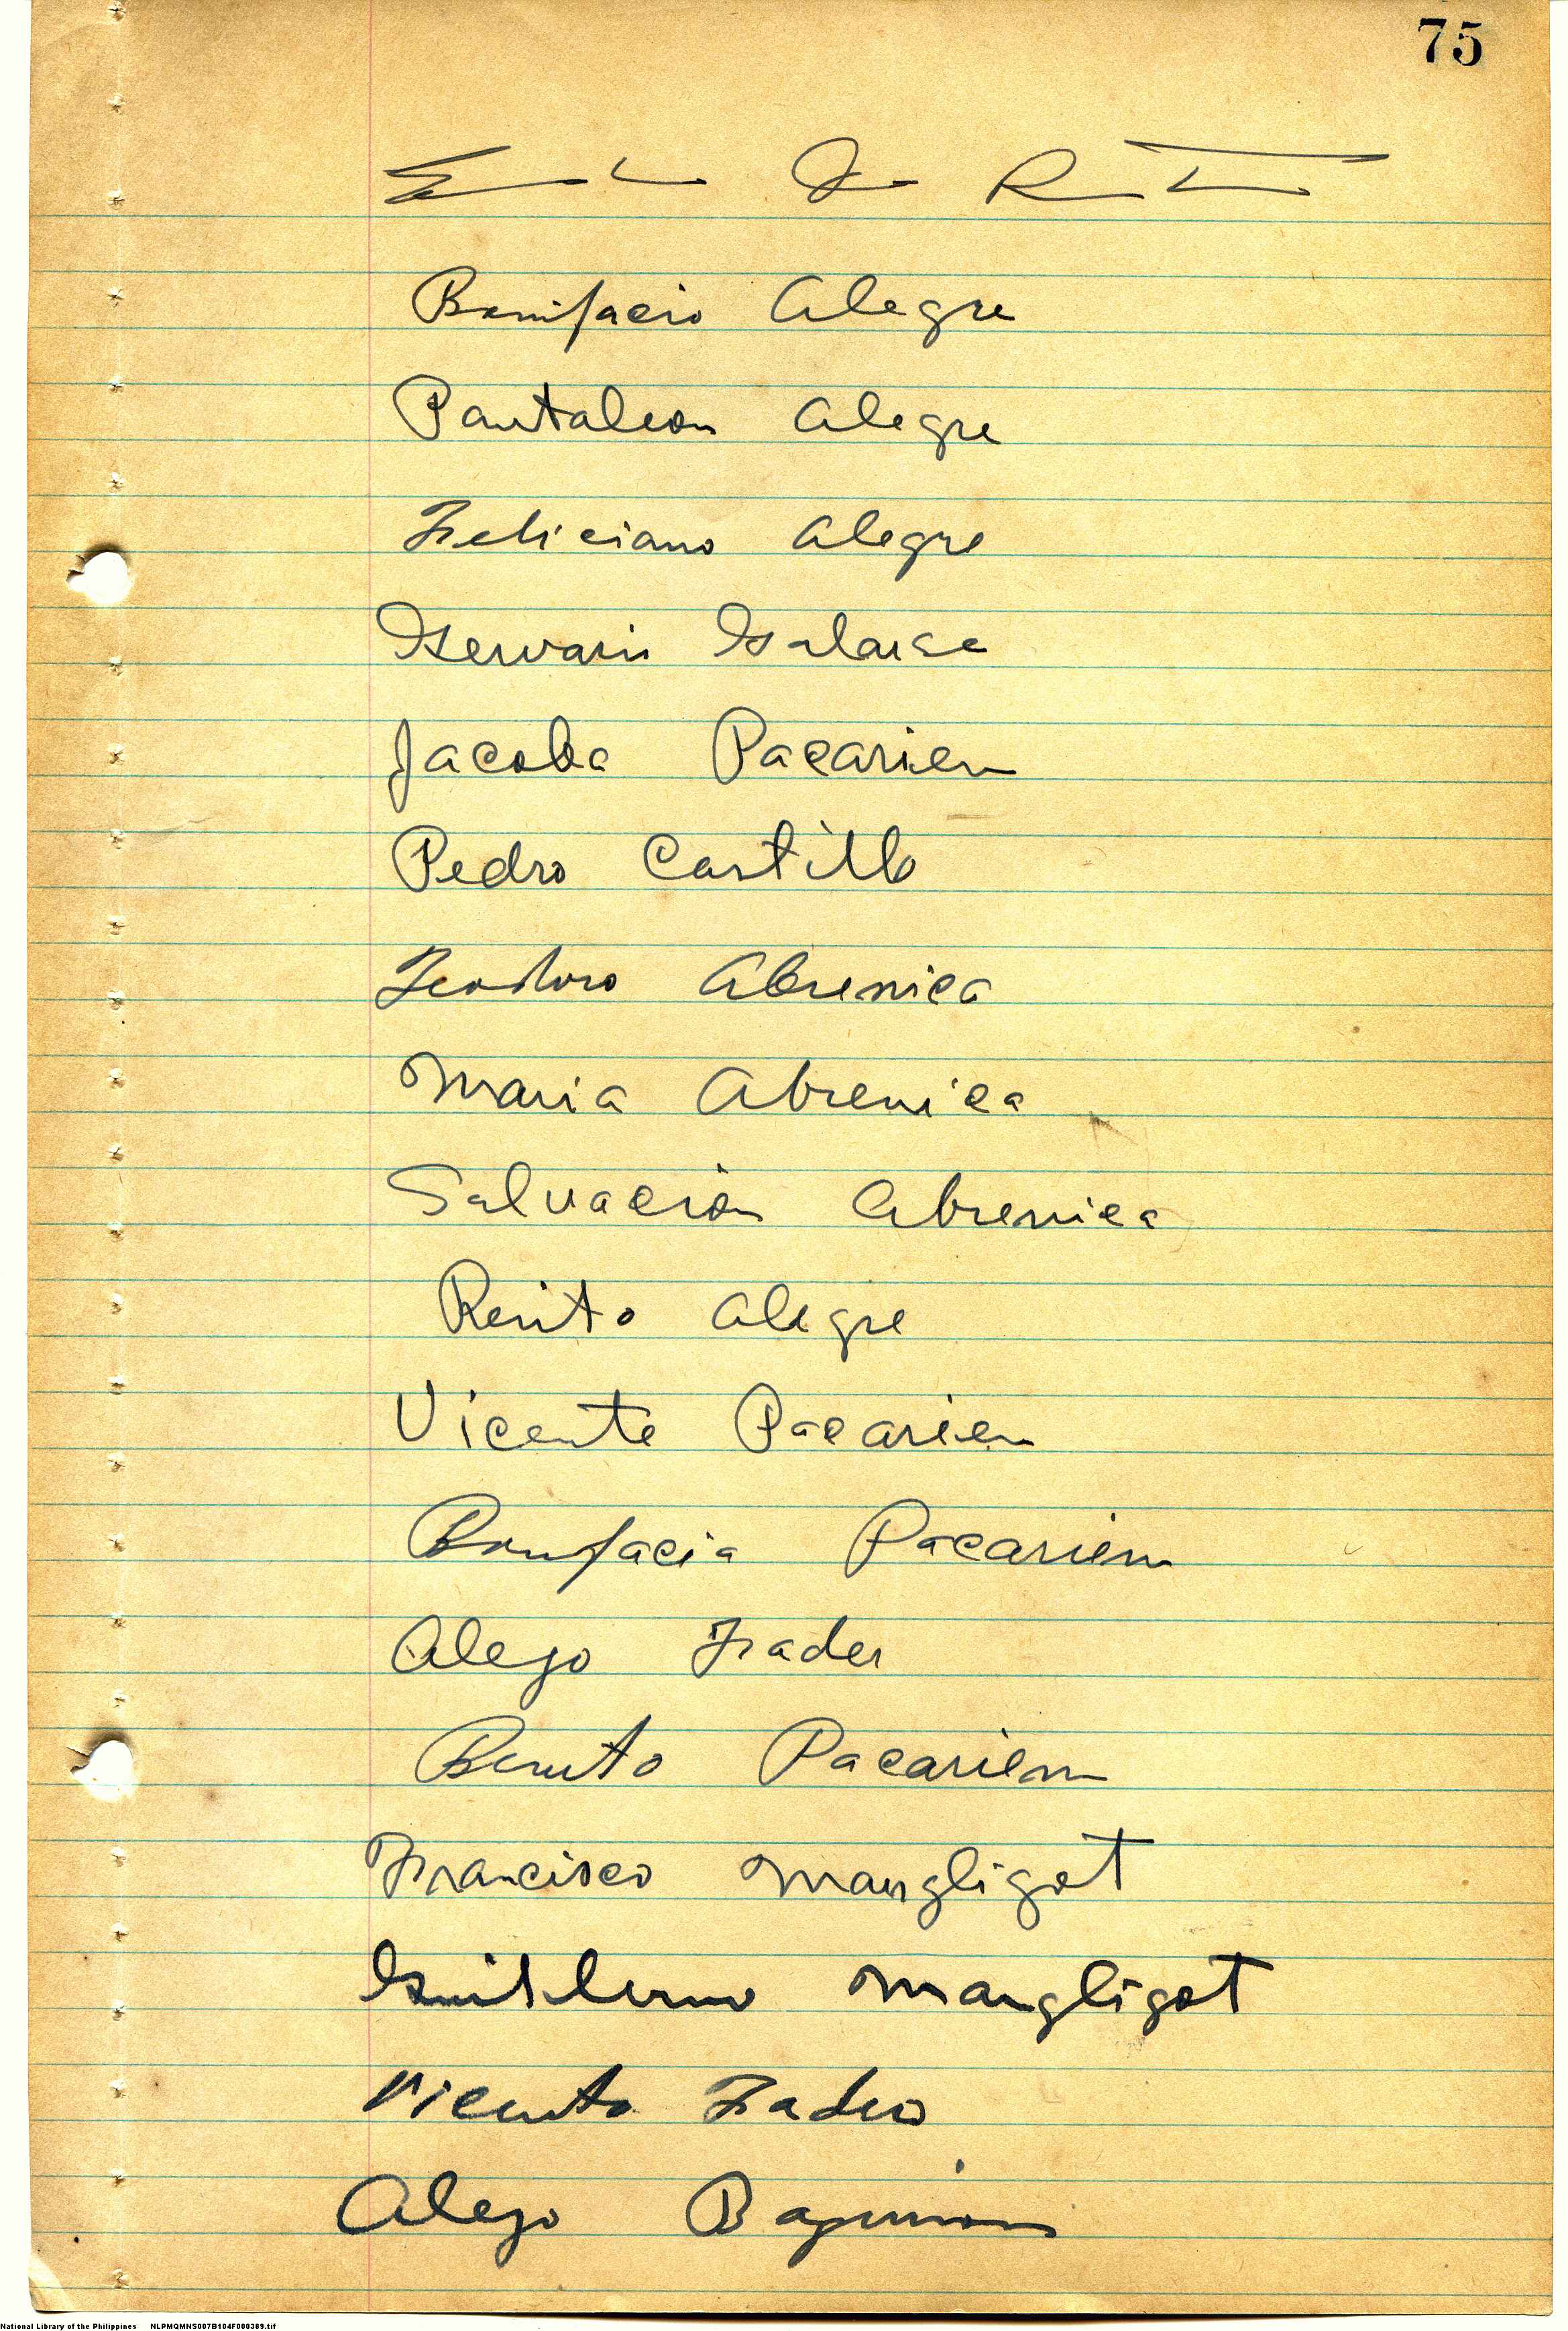 75
Bonifacio Alegre
Pantaleon Alegre
Feliciano Alegre
Gervasio
Jacoba Pacarien
Pedro Castillo
Teodoro Abrenica
Maria Abrenica
Salvacion Abrenica
Alegre
Vicente Pacarien
Bonifacia Pacarien
Alejo
Benito Pacarien
Francisco Mangligot
Guillermo Mangligot
Alejo
National Library of the Philippines NLPMQMNS007B104F000389.tif